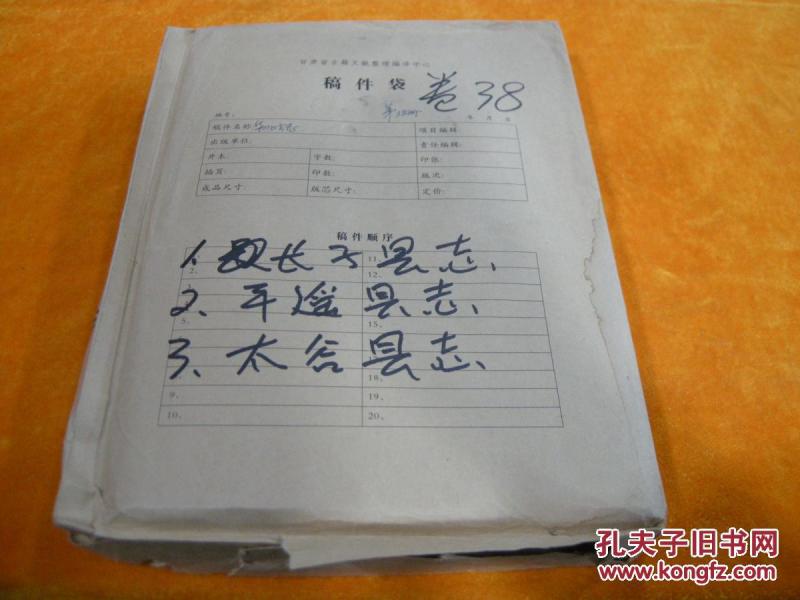 甘肃省古籍文献整理编译中心
稿件袋 卷38
编号: 年 月 日
稿件名称: 项目编辑:
出版单位: 责任编辑:
开本: 字数: 印张:
插页: 印数: 版次:
成品尺寸: 版芯尺寸: 定价:
稿件顺序
1、长子县志、
2、平遥县志、
3、太谷县志、
2、
5、
9、
10、
11、
12、
15、
18、
19、
20、
孔夫子旧书网
www.kongfz.com